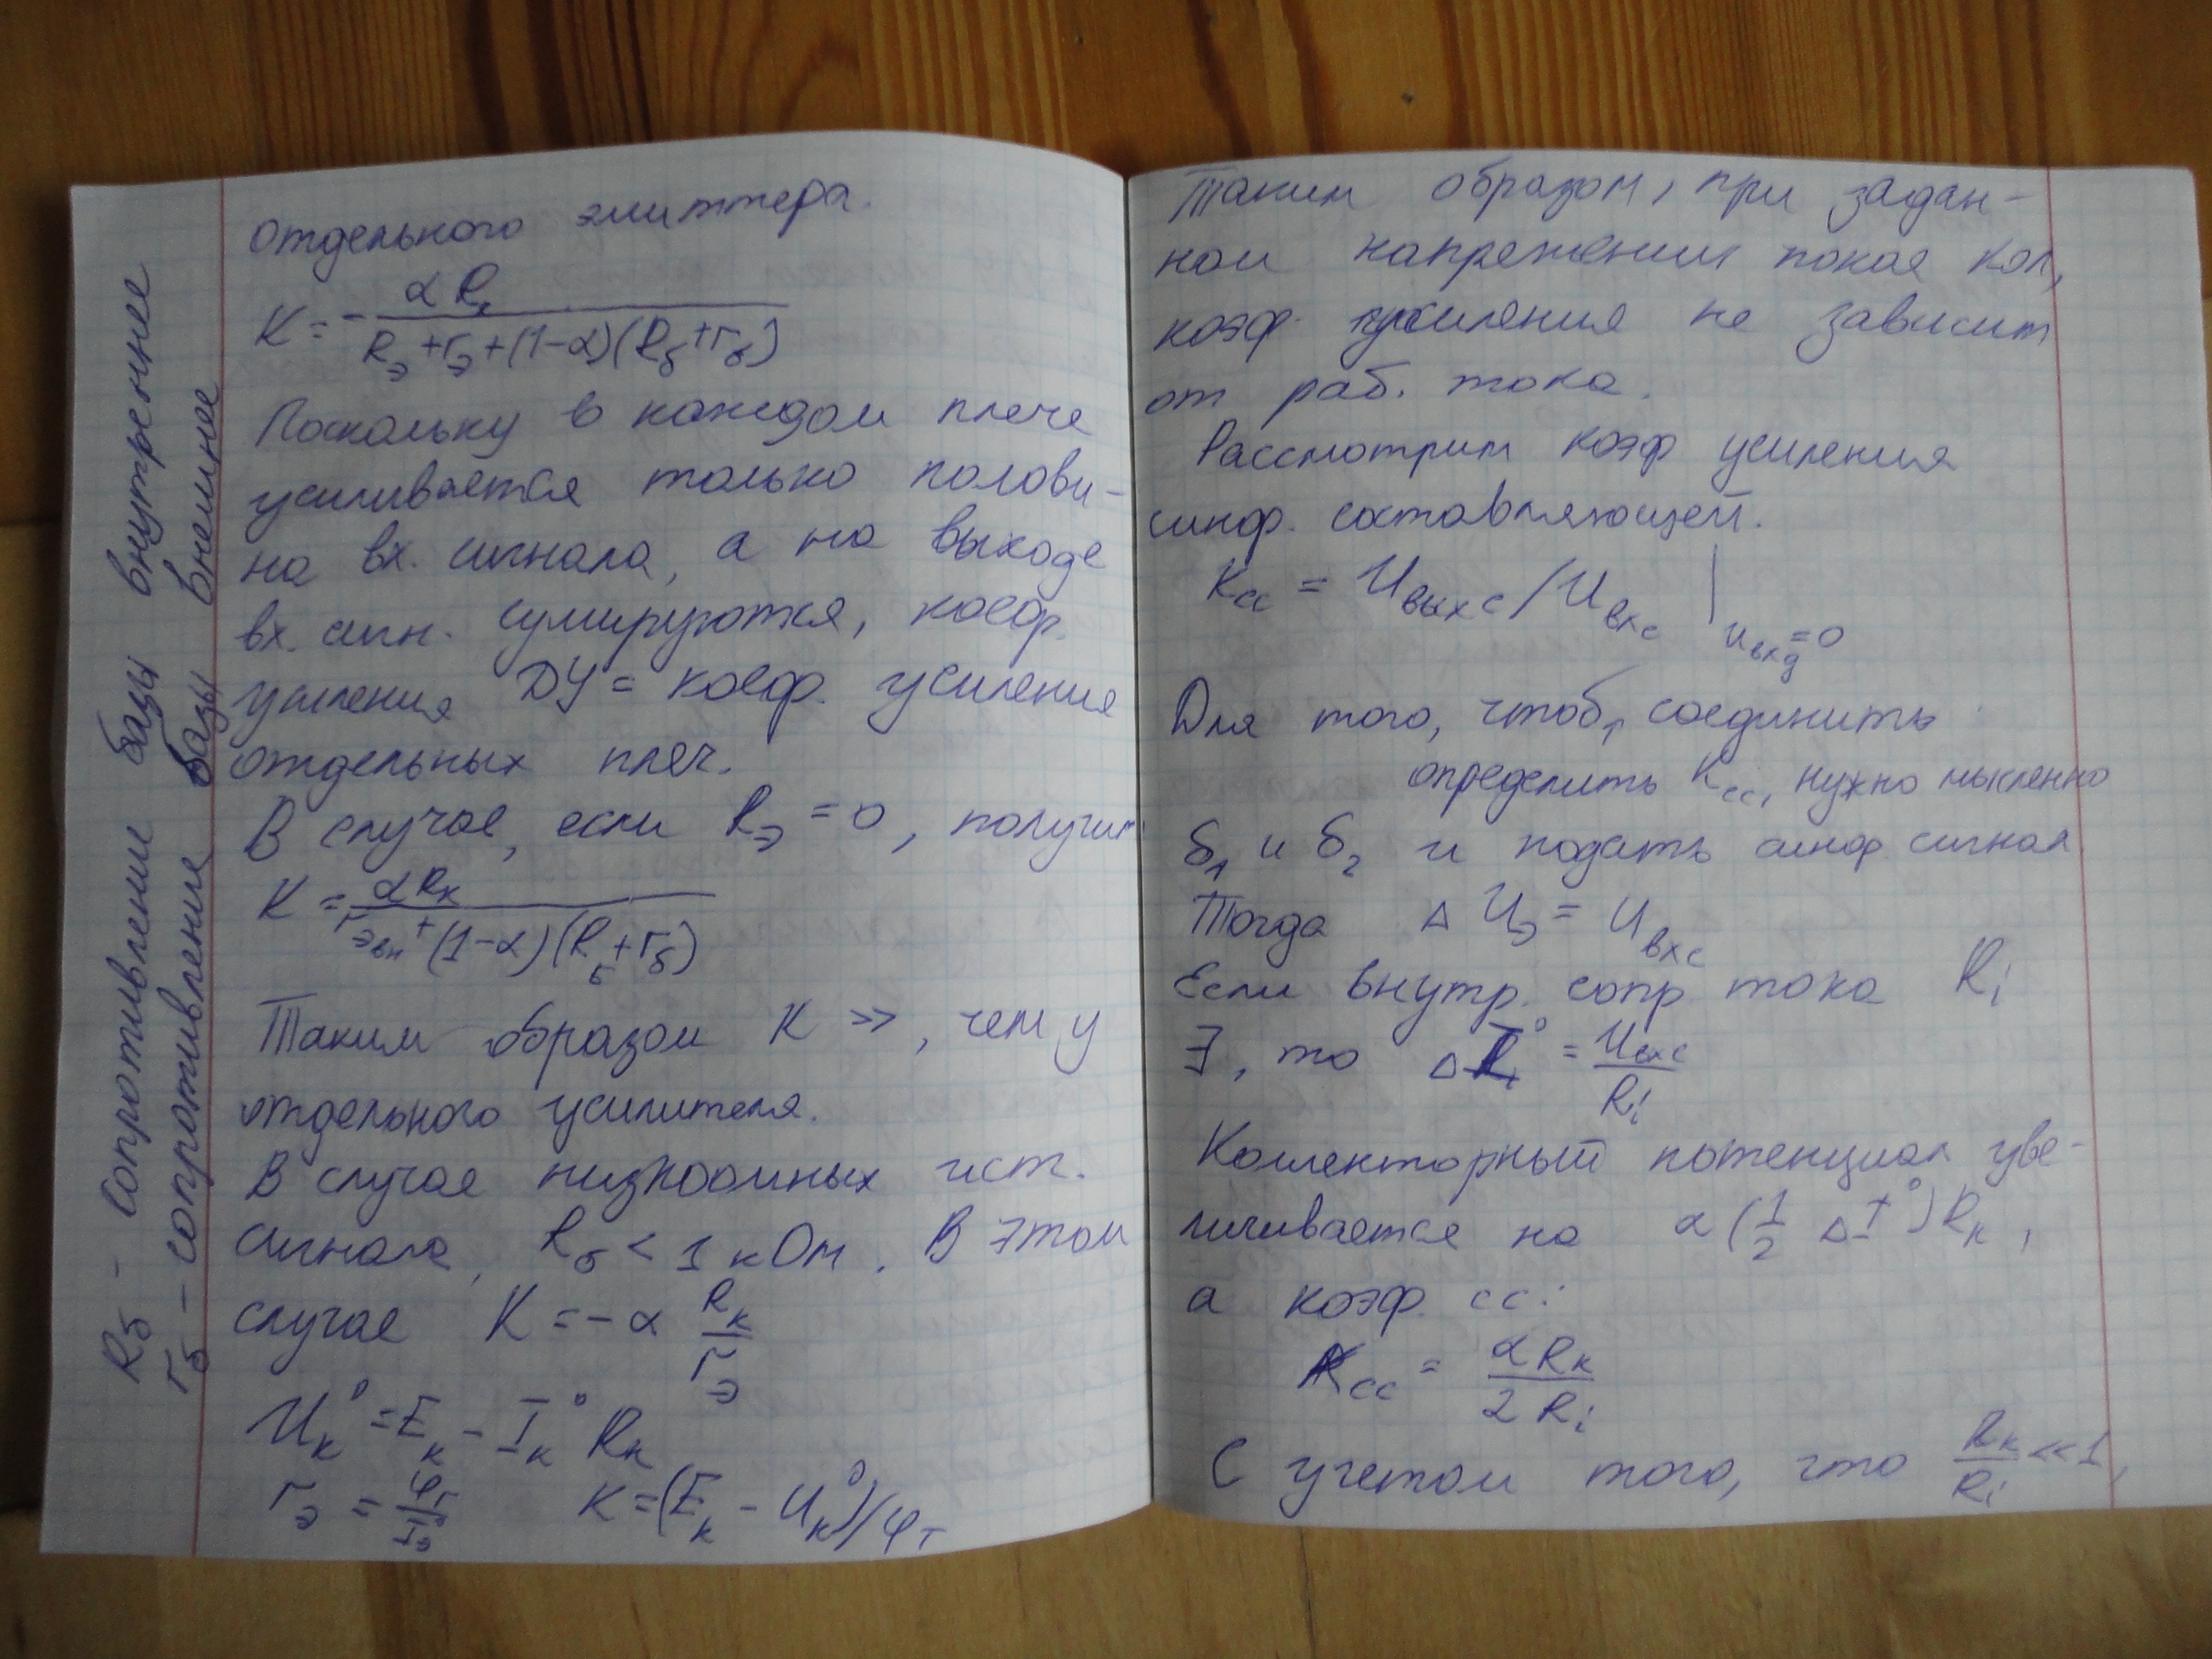 Rб - Сопротивление базы внутреннее
rб - сопротивление базы внешнее
отдельного эмиттера.
K = - αRк / (Rэ + rэ + (1-α)(Rб + rб))
Поскольку в каждом плече
усиливается только полови-
на вх. сигнала, а на выходе
вх. сигн. сумируются, коеф.
усиления ДУ = коеф. усиления
отдельных плеч.
В случае, если Rэ = 0, получим
K = αRк / (rэвн + (1-α)(Rб + rб))
Таким образом K >>, чем у
отдельного усилителя.
В случае низкоомных ист.
сигнала, Rб < 1 кОм. В этом
случае K = -α Rк / rэ
Uк° = Eк - Iк° Rк
rэ = φт / Iэ° K = (Eк - Uк°)/φт
Таким образом, при задан-
ном напрежении покоя кол,
коэф. усиления не зависит
от раб. тока.
Рассмотрим коэф усиления
синф. составляющей.
Kсс = Uвых с / Uвх с | uвх д = 0
Для того, чтоб, соединить
определить Kсс, нужно мысленно
Б1 и Б2 и подать синф. сигнал
Тогда Δ Uэ = Uвх с
Если внутр. сопр тока Ri
∃, то ΔI° = Uвх с / Ri
Коллекторный потенциал уве-
личивается на α (1/2 ΔI°) Rк,
а коэф. сс:
Kсс = αRк / 2Ri
С учетом того, что Rк / Ri << 1,